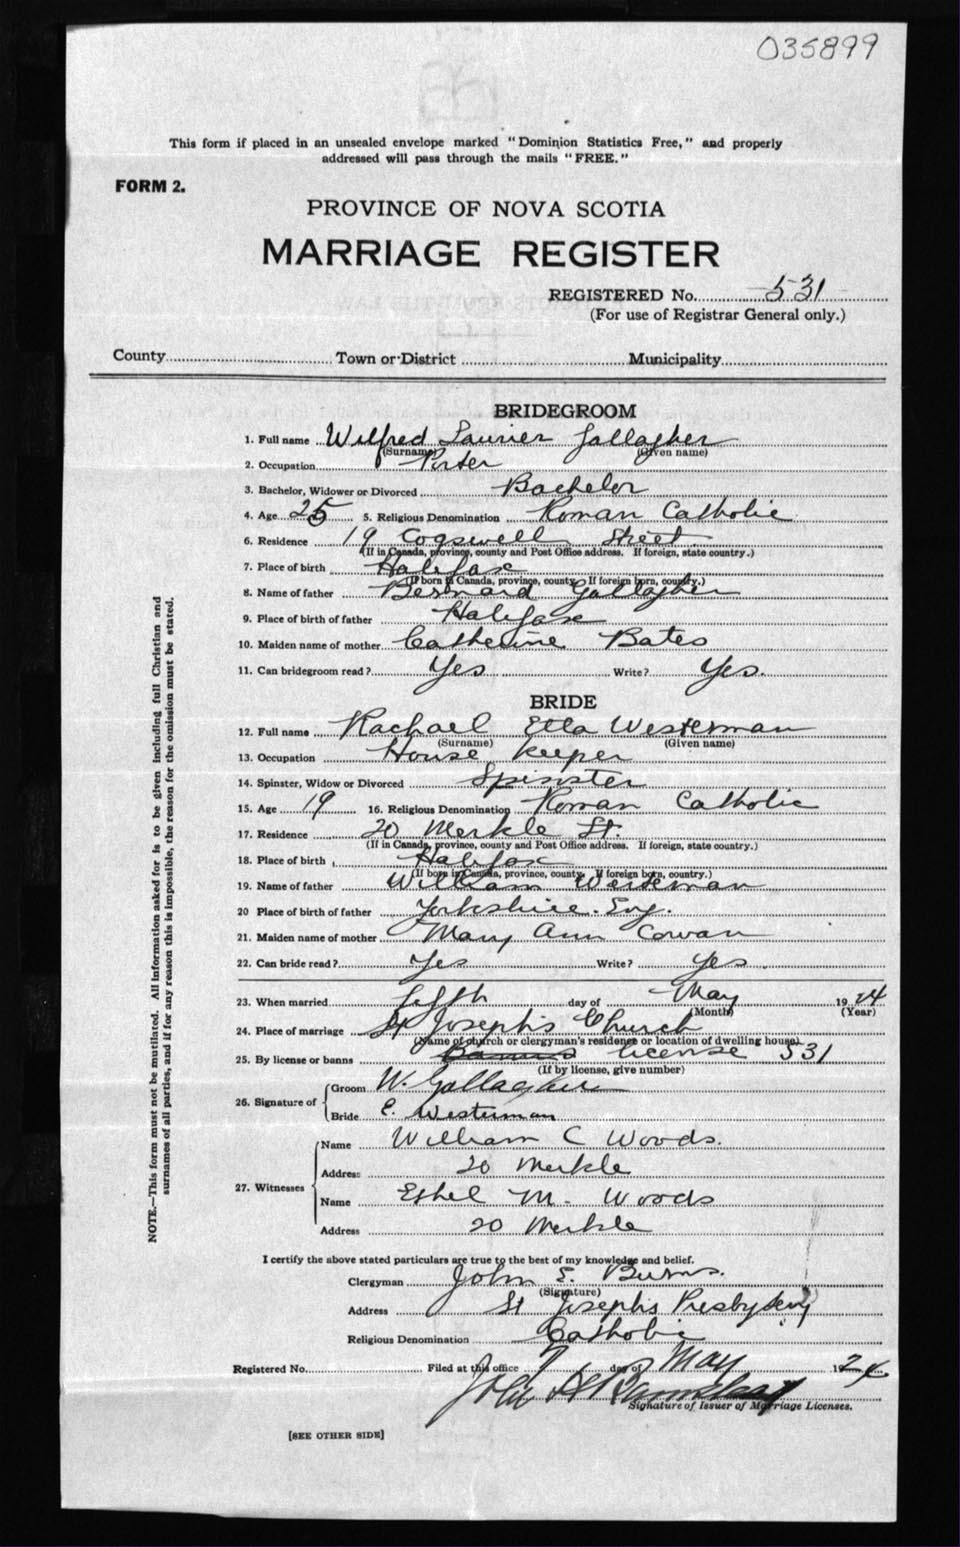 035899
This form if placed in an unsealed envelope marked "Dominion Statistics Free," and properly
addressed will pass through the mails "FREE."
FORM 2.
PROVINCE OF NOVA SCOTIA
MARRIAGE REGISTER
REGISTERED No. 531
(For use of Registrar General only.)
County Town or District Municipality
BRIDEGROOM
1. Full name Wilfred Laurier Gallagher
(Surname) (Given name)
2. Occupation Porter
3. Bachelor, Widower or Divorced Bachelor
4. Age 25 5. Religious Denomination Roman Catholic
6. Residence 19 Cogswell Street
(If in Canada, province, county and Post Office address. If foreign, state country.)
7. Place of birth Halifax
(If born in Canada, province, county. If foreign born, country.)
8. Name of father Bernard Gallagher
9. Place of birth of father Halifax
10. Maiden name of mother Catherine Bates
11. Can bridegroom read? Yes Write? Yes.
BRIDE
12. Full name Rachael Etta Westerman
(Surname) (Given name)
13. Occupation House keeper
14. Spinster, Widow or Divorced Spinster
15. Age 19 16. Religious Denomination Roman Catholic
17. Residence 20 Merkle St.
(If in Canada, province, county and Post Office address. If foreign, state country.)
18. Place of birth Halifax
(If born in Canada, province, county. If foreign born, country.)
19. Name of father William Westerman
20 Place of birth of father Yorkshire. Eng.
21. Maiden name of mother Mary Ann Cowan
22. Can bride read? Yes Write? Yes
23. When married fifth day of May 1924
(Month) (Year)
24. Place of marriage St Joseph's Church
(Name of church or clergyman's residence or location of dwelling house)
25. By license or banns Banns license 531
(If by license, give number)
26. Signature of
Groom W. Gallagher
Bride E. Westerman
27. Witnesses
Name William C Woods.
Address 20 Merkle
Name Ethel M. Woods
Address 20 Merkle
I certify the above stated particulars are true to the best of my knowledge and belief.
Clergyman John E. Burns.
(Signature)
Address St Joseph's Presbytery
Religious Denomination Catholic
Registered No. Filed at this office 7 day of May 1924
Signature of Issuer of Marriage Licenses.
[SEE OTHER SIDE]
NOTE.—This form must not be mutilated. All information asked for is to be given including full Christian and
surnames of all parties, and if for any reason this is impossible, the reason for the omission must be stated.